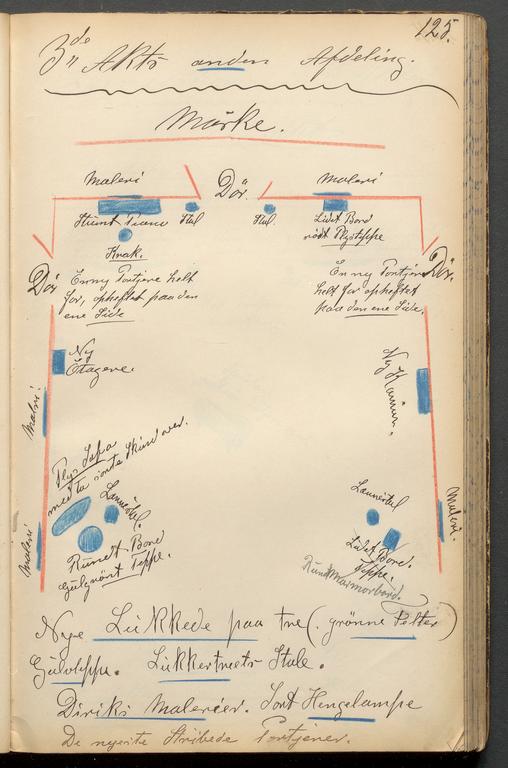 125.
3die Akts anden Afdeling.
Mærke.
Maleri
Dör
Maleri
Stumt Piano
Stol
Stol.
Lidet Bord
rödt Plystæppe
Knak.
Dör
En ny Portjere helt
for, opheftet paa den
ene Side
En ny Portjere
helt for opheftet
paa den ene Side.
Dör.
Ny
Etagere.
Ny Kamin.
Maleri
Plys Sofa
med to sorte Skind over.
Lænestol.
Maleri
Rundt Bord
Gulgrönt Teppe.
Lænestol
Maleri.
Lidet Bord.
Teppe.
Rundt Marmorbord.
Nye Lukkede paa tre (. grönne Felter)
Gulvteppe. Lukkertreets Stole.
Diriks Malerier. Sort Hengelampe
De nyeste Stribede Portjerer.